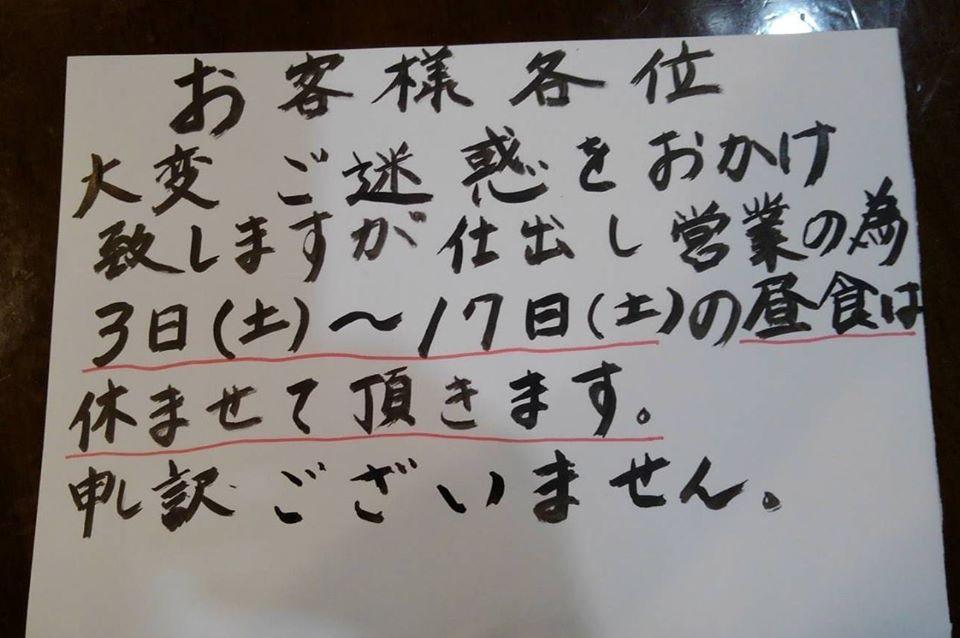 お客様各位
大変ご迷惑をおかけ
致しますが仕出し営業の為
3日(土)～17日(土)の昼食は
休ませて頂きます。
申し訳ございません。